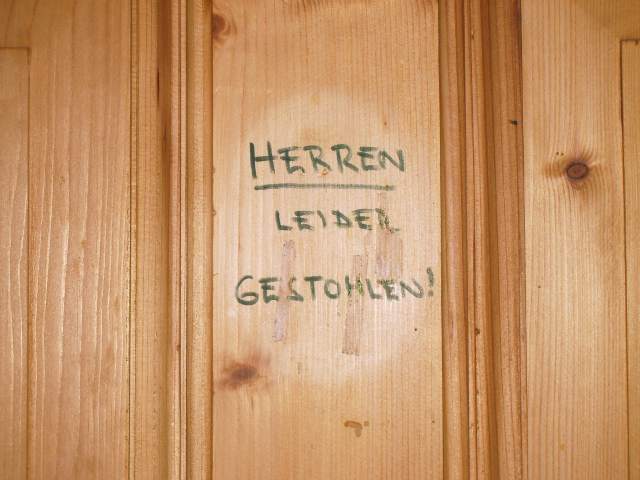 HERREN
LEIDER
GESTOHLEN!